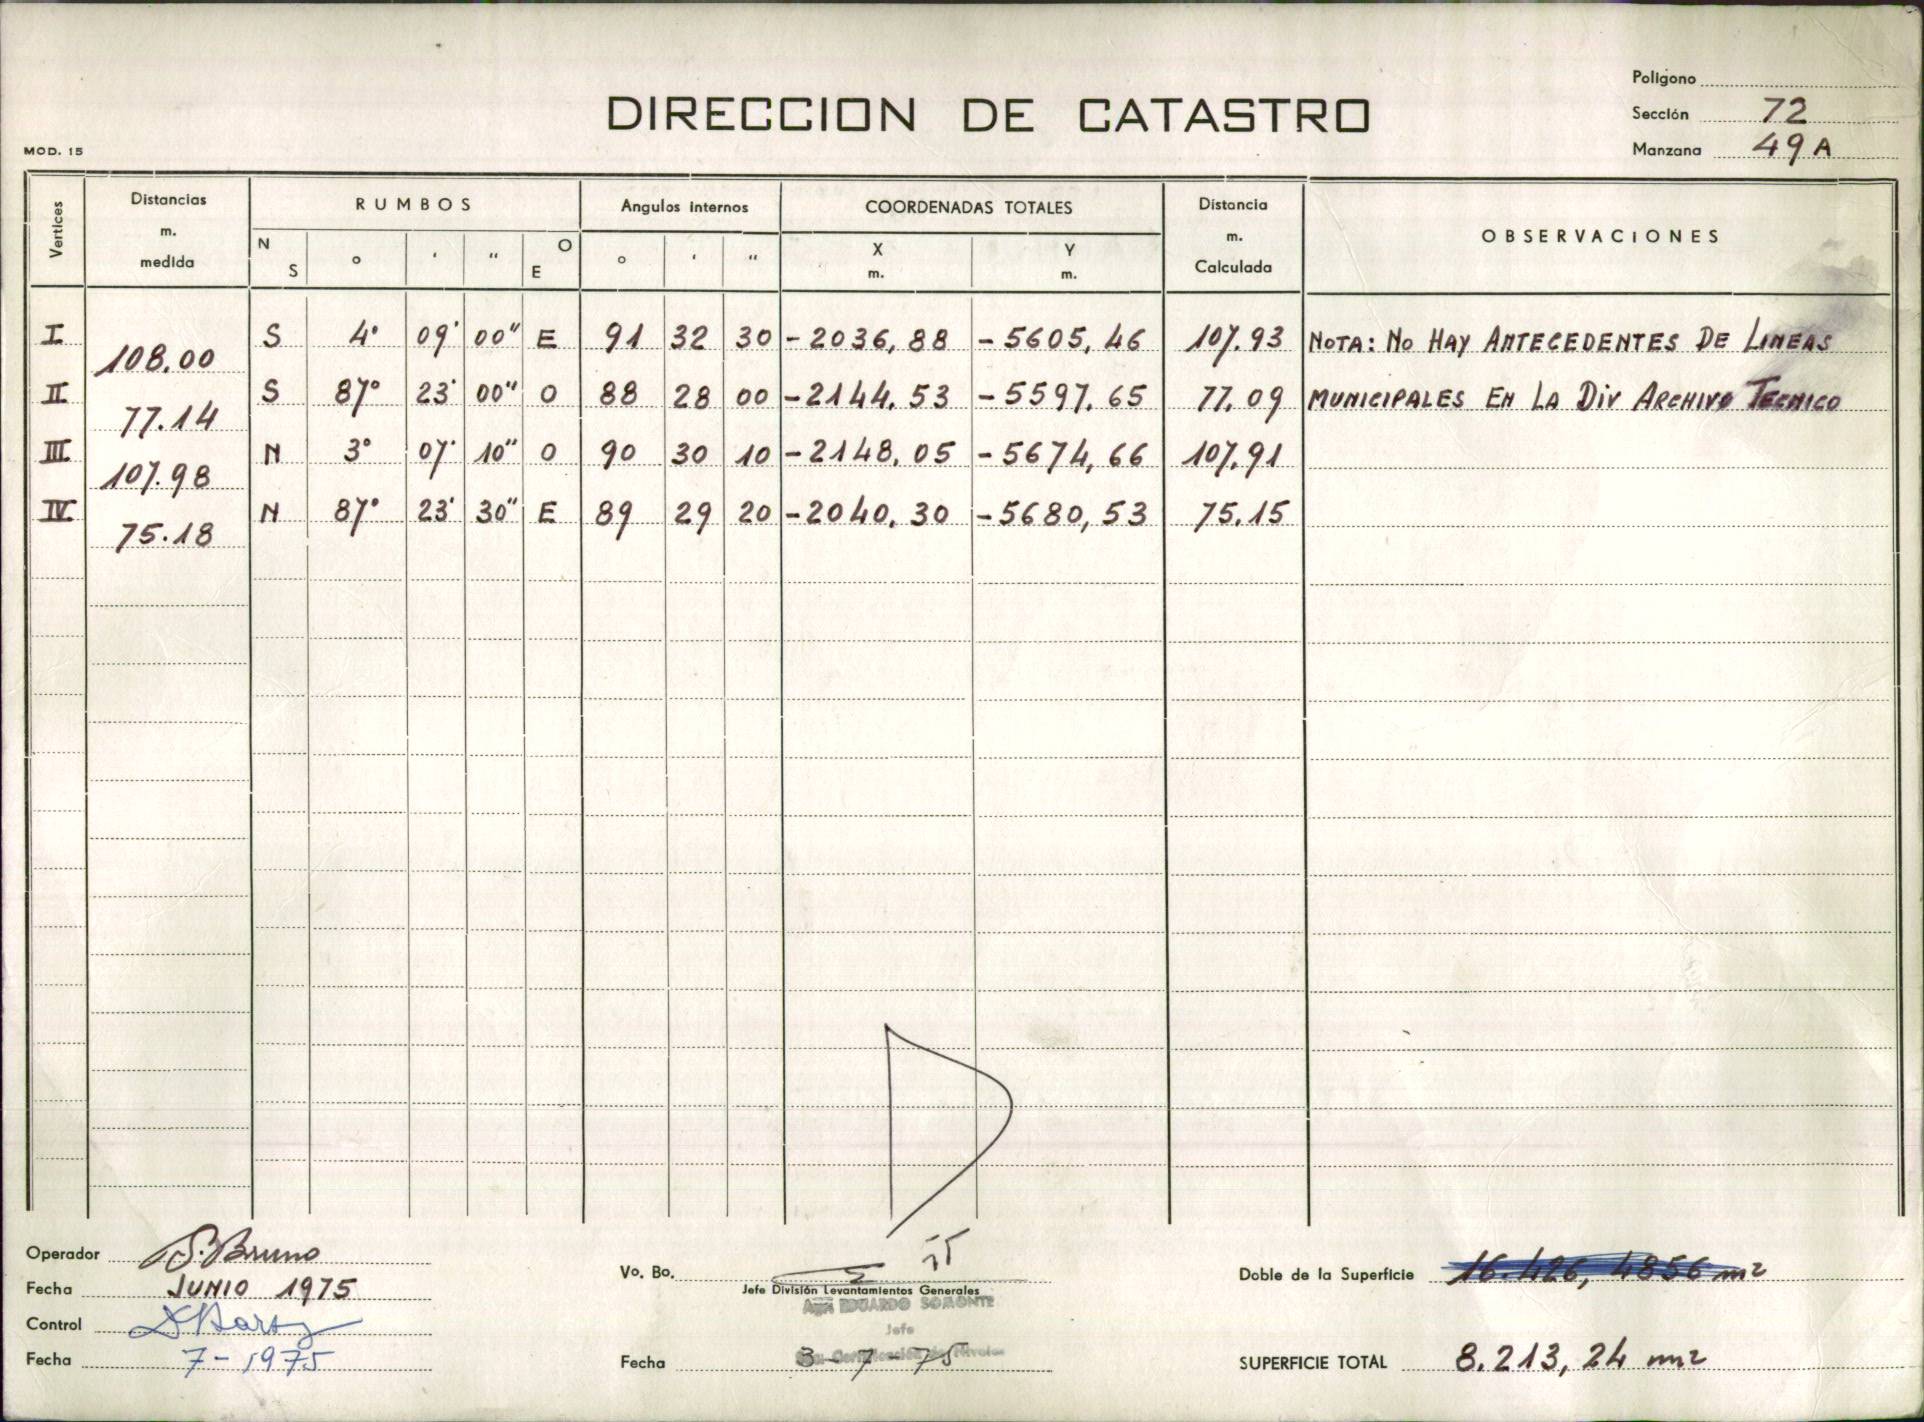 DIRECCION DE CATASTRO
Polígono
Sección 72
Manzana 49 A
MOD. 15
Vertices
Distancias m. medida
RUMBOS
Angulos internos
COORDENADAS TOTALES
Distancia m. Calculada
OBSERVACIONES
N S ° ' " O E
° ' "
X m.
Y m.
I 108.00 S 4° 09' 00" E 91 32 30 -2036,88 -5605,46 107.93 NOTA: NO HAY ANTECEDENTES DE LINEAS
II 77.14 S 87° 23' 00" O 88 28 00 -2144,53 -5597,65 77,09 MUNICIPALES EN LA DIV ARCHIVO TECNICO
III 107.98 N 3° 07' 10" O 90 30 10 -2148,05 -5674,66 107,91
IV 75.18 N 87° 23' 30" E 89 29 20 -2040,30 -5680,53 75.15
Operador S. Bruno
Fecha JUNIO 1975
Control
Fecha 7-1975
Vo. Bo.
Jefe División Levantamientos Generales
EDUARDO SOMONTE
Jefe
Fecha 3-7-75
Doble de la Superficie 16.426,4856 m2
SUPERFICIE TOTAL 8.213,24 m2